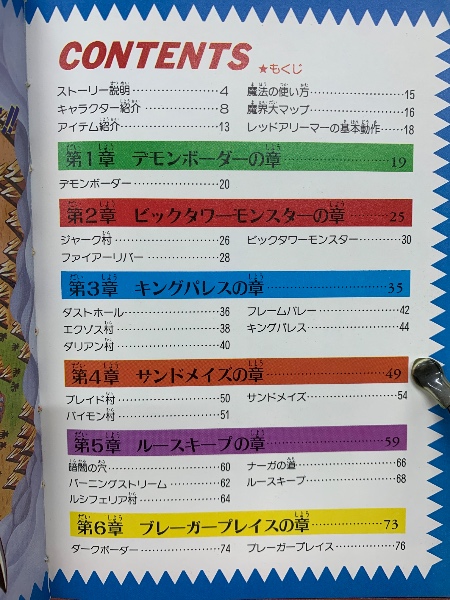 CONTENTS
★もくじ
ストーリー説明 4
キャラクター紹介 8
アイテム紹介 13
魔法の使い方 15
魔界大マップ 16
レッドアリーマーの基本動作 18
第1章 デモンボーダーの章 19
デモンボーダー 20
第2章 ビックタワーモンスターの章 25
ジャーク村 26
ファイアーリバー 28
ビックタワーモンスター 30
第3章 キングパレスの章 35
ダストホール 36
エクゾス村 38
ダリアン村 40
フレームバレー 42
キングパレス 44
第4章 サンドメイズの章 49
ブレイド村 50
バイモン村 51
サンドメイズ 54
第5章 ルースキープの章 59
暗闇の穴 60
バーニングストリーム 62
ルシフェリア村 64
ナーガの道 66
ルースキープ 68
第6章 ブレーガープレイスの章 73
ダークボーダー 74
ブレーガープレイス 76